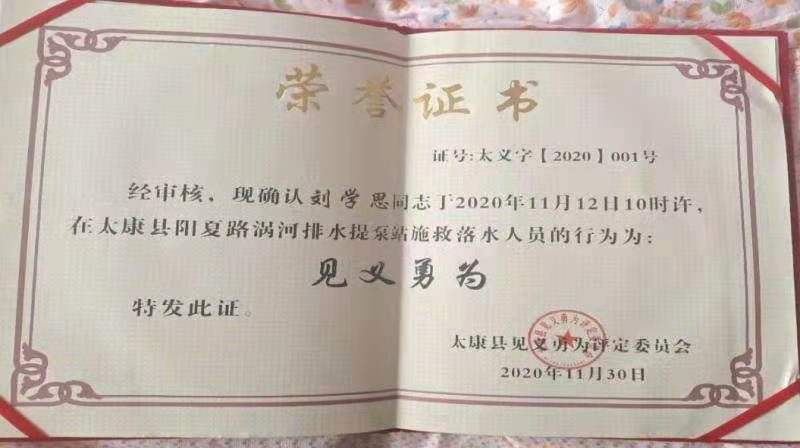 荣誉证书
证号:太义字【2020】001号
经审核，现确认刘学思同志于2020年11月12日10时许，
在太康县阳夏路涡河排水提泵站施救落水人员的行为为：
见义勇为
特发此证。
太康县见义勇为评定委员会
2020年11月30日